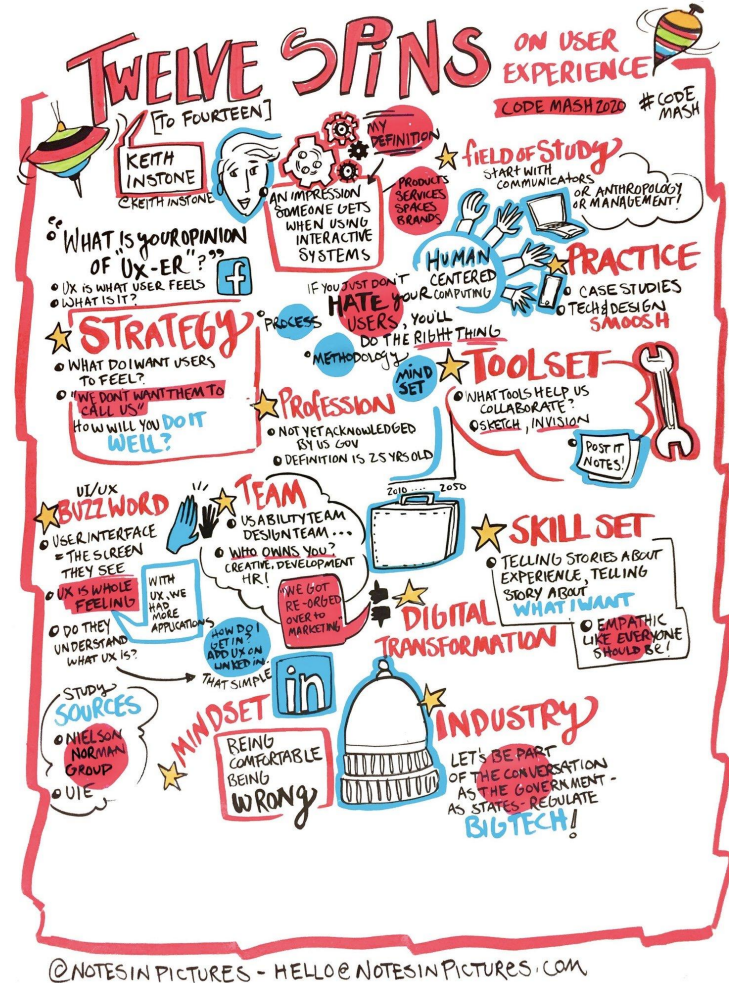 TWELVE SPINS
[TO FOURTEEN]
ON USER
EXPERIENCE
CODE MASH 2020
#CODE
MASH
KEITH
INSTONE
@KEITH INSTONE
MY
DEFINITION
AN IMPRESSION
SOMEONE GETS
WHEN USING
INTERACTIVE
SYSTEMS
PRODUCTS
SERVICES
SPACES
BRANDS
FIELD OF STUDY
START WITH
COMMUNICATORS
OR ANTHROPOLOGY
OR MANAGEMENT!
"WHAT IS YOUR OPINION
OF "UX-ER"?"
f
UX IS WHAT USER FEELS
WHAT IS IT?
HUMAN
CENTERED
COMPUTING
PRACTICE
CASE STUDIES
TECH & DESIGN
SMOOSH
IF YOU JUST DON'T
HATE YOUR
USERS, YOU'LL
DO THE RIGHT THING
PROCESS
METHODOLOGY
MIND
SET
STRATEGY
WHAT DO I WANT USERS
TO FEEL?
"WE DON'T WANT THEM TO
CALL US"
HOW WILL YOU DO IT
WELL?
PROFESSION
NOT YET ACKNOWLEDGED
BY US GOV
DEFINITION IS 25 YRS OLD
2010 .... 2050
TOOLSET
WHAT TOOLS HELP US
COLLABORATE?
SKETCH, INVISION
POST IT
NOTES!
UI/UX
BUZZWORD
USER INTERFACE
= THE SCREEN
THEY SEE
UX IS WHOLE
FEELING
DO THEY
UNDERSTAND
WHAT UX IS?
WITH
UX, WE
HAD
MORE
APPLICATIONS
TEAM
USABILITY TEAM
DESIGN TEAM ...
WHO OWNS YOU?
CREATIVE, DEVELOPMENT
HR!
"WE GOT
RE-ORGED
OVER TO
MARKETING"
HOW DO I
GET IN?
ADD UX ON
LINKED IN.
THAT SIMPLE
in
SKILL SET
TELLING STORIES ABOUT
EXPERIENCE, TELLING
STORY ABOUT
WHAT I WANT
EMPATHIC
LIKE EVERYONE
SHOULD BE!
DIGITAL
TRANSFORMATION
STUDY
SOURCES
NIELSON
NORMAN
GROUP
UIE
MINDSET
BEING
COMFORTABLE
BEING
WRONG
INDUSTRY
LET'S BE PART
OF THE CONVERSATION
AS THE GOVERNMENT -
AS STATES - REGULATE
BIG TECH!
@NOTESINPICTURES - HELLO@NOTESINPICTURES.COM